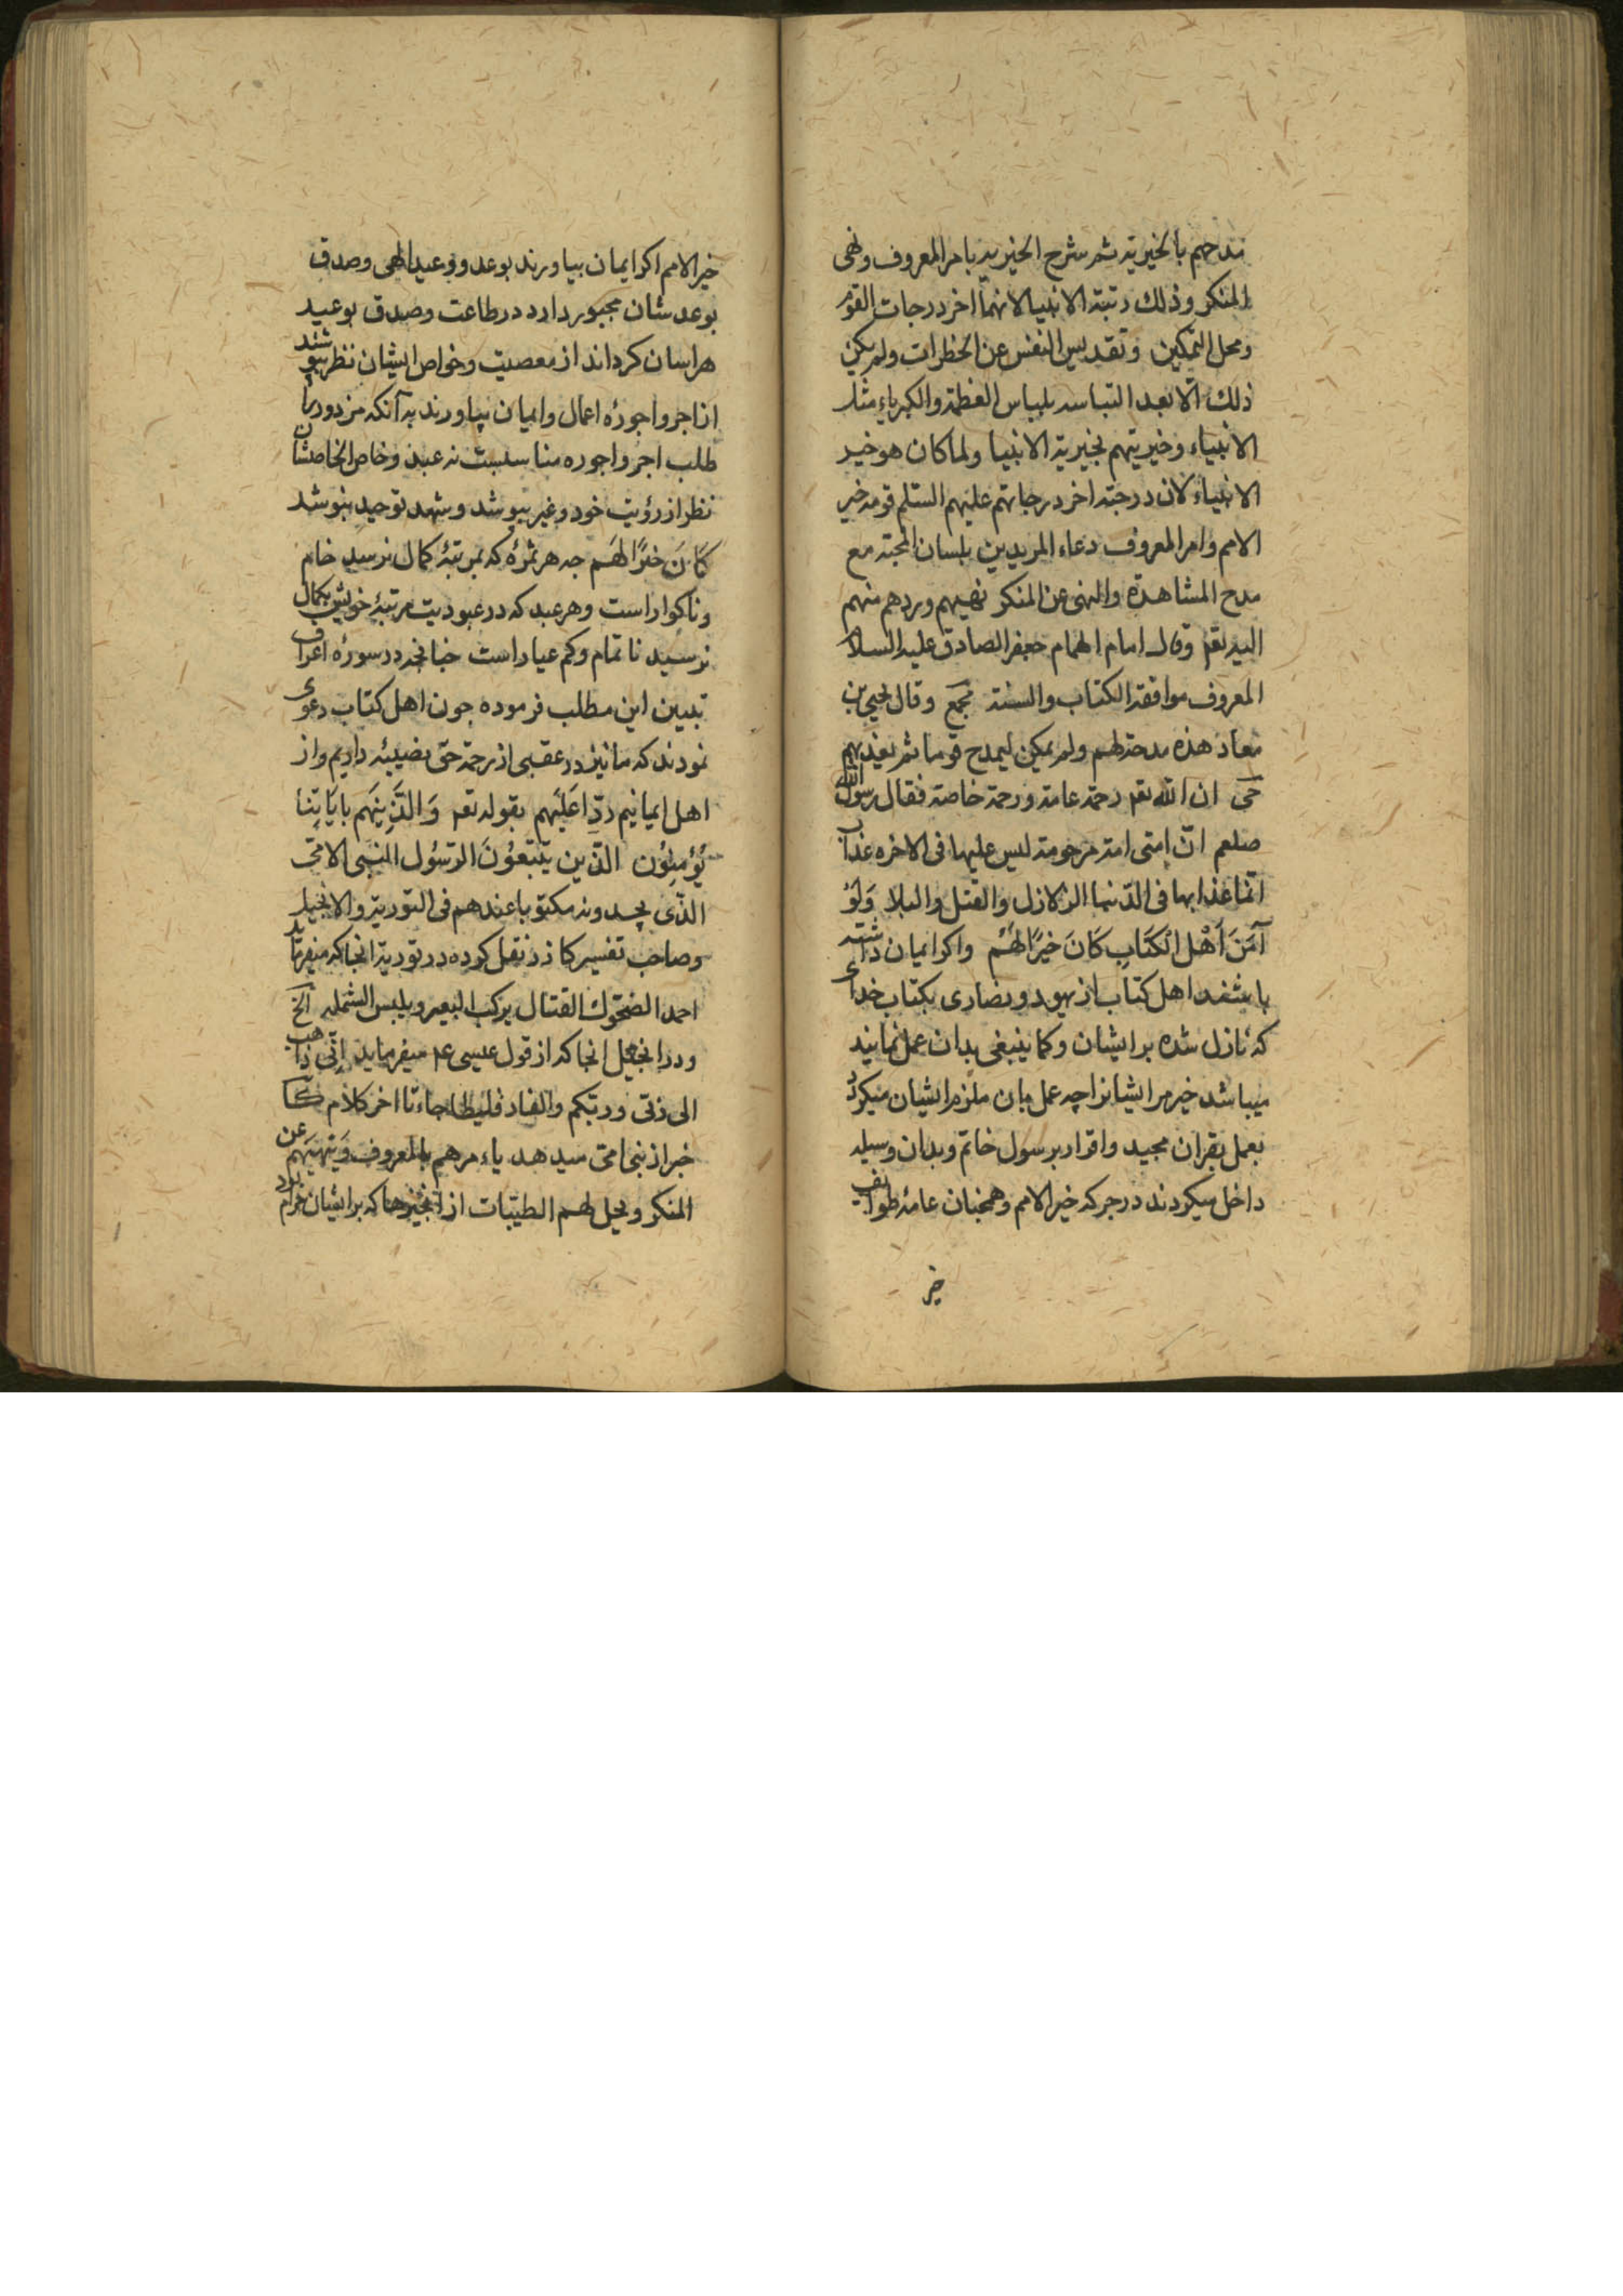 مدحهم بالخیریة ثم شرح الخیریه بامر المعروف ونهی
المنکر وذلك رتبة الانبیا لانهما اخر درجات القوم
ومحل التمکین وتقدیس النفس عن الخطرات ولم یکن
ذلك الا بعد التباسه بلباس العظمة والکبریاء مثل
الانبیاء وخیریتهم بخیریة الانبیا ولما کان هو خیر
الانبیاء لان درجته اخر درجاتهم علیهم السلم قومه خیر
الامم وامر المعروف دعاء المریدین بلسان المحبة مع
مدح المشاهدة والنهی عن المنکر نهیهم وردهم منهم
الیه تعم وقال امام الهمام جعفر الصادق علیه السلا
المعروف موافقة الکتاب والسنة مجمع وقال یحیی بن
معاذ هذه مدحة لهم ولم یکن لیمدح قوما ثم یعذبهم
حی ان الله تعم رحمة عامة ورحمة خاصة فقال رسول الله
صلعم ان امتی امة مرحومة لیس علیها فی الاخره عذاب
انما عذابها فی الدنیا الزلازل والقتل والبلا وَلَوْ
آمَنَ اَهْل الْکَتَابِ کَانَ خَیرًا لَهُمْ واکر ایمان داشته
باشند اهل کتاب از یهود ونصاری بکتاب خدای
که نازل شده بر ایشان وکما ینبغی بدان عمل نمایند
میباشد خیر مر ایشانرا چه عمل بان ملزم ایشان میکردد
بعمل بقران مجید واقرار برسول خاتم وبدان وسیله
داخل میکردند در جرکه خیر الامم وهمچنان عامهٔ طوایف
خیر
خیر الامم اکر ایمان بیاورند بوعد ووعید الهی وصدق
بوعد شان مجبور دارد در طاعت وصدق بوعید
هراسان کرداند از معصیت وخواص ایشان نظر بپوشند
از اجر واجورهٔ اعمال وایمان بیاورند به آنکه مزدورانرا
طلب اجر واجوره مناسبست نه عبد وخاص الخاصشان
نظر از رؤیت خود وغیر بپوشد وشهد توحید بنوشد
کَانَ خَیرًا لَهَم جه هر ثمرهٔ که بمرتبهٔ کمال نرسید خام
وناکوار است وهر عبد که در عبودیت مرتبهٔ خویش بکمال
نرسید ناتمام وکم عیار است جنانچه در سورهٔ اعراف
تبیین این مطلب فرموده جون اهل کتاب دعوی
نمودند که ما نیز در عقبی از رحمة حق نصیبه داریم واز
اهل ایمانیم ردّا عَلَیهم بقوله تعم وَالَّذِینَهَم بایَاتِنَا
یُؤمِنُون الذّین یَتّبعُونَ الرّسُول النبی الامّی
الذّی یجدونه مکتوبا عندهم فی التوریة والانجیل
وصاحب تفسیر کازر نقل کرده در توریة انجا که میفرماید
احمد الضحوك القتال یرکب البعیر ویلبس الشملة الخ
ودر انجیل انجا که از قول عیسی عم میفرماید اِنّی ذاهب
الی ربّی وربّکم والفارقلیطا جاء تا اخر کلام
خبر از نبی امی میدهد یاءمرهم بالمعروف وَینهیَهم عن
المنکر ویحل لهم الطیّبات از انچیزها که بر ایشان حرام بود